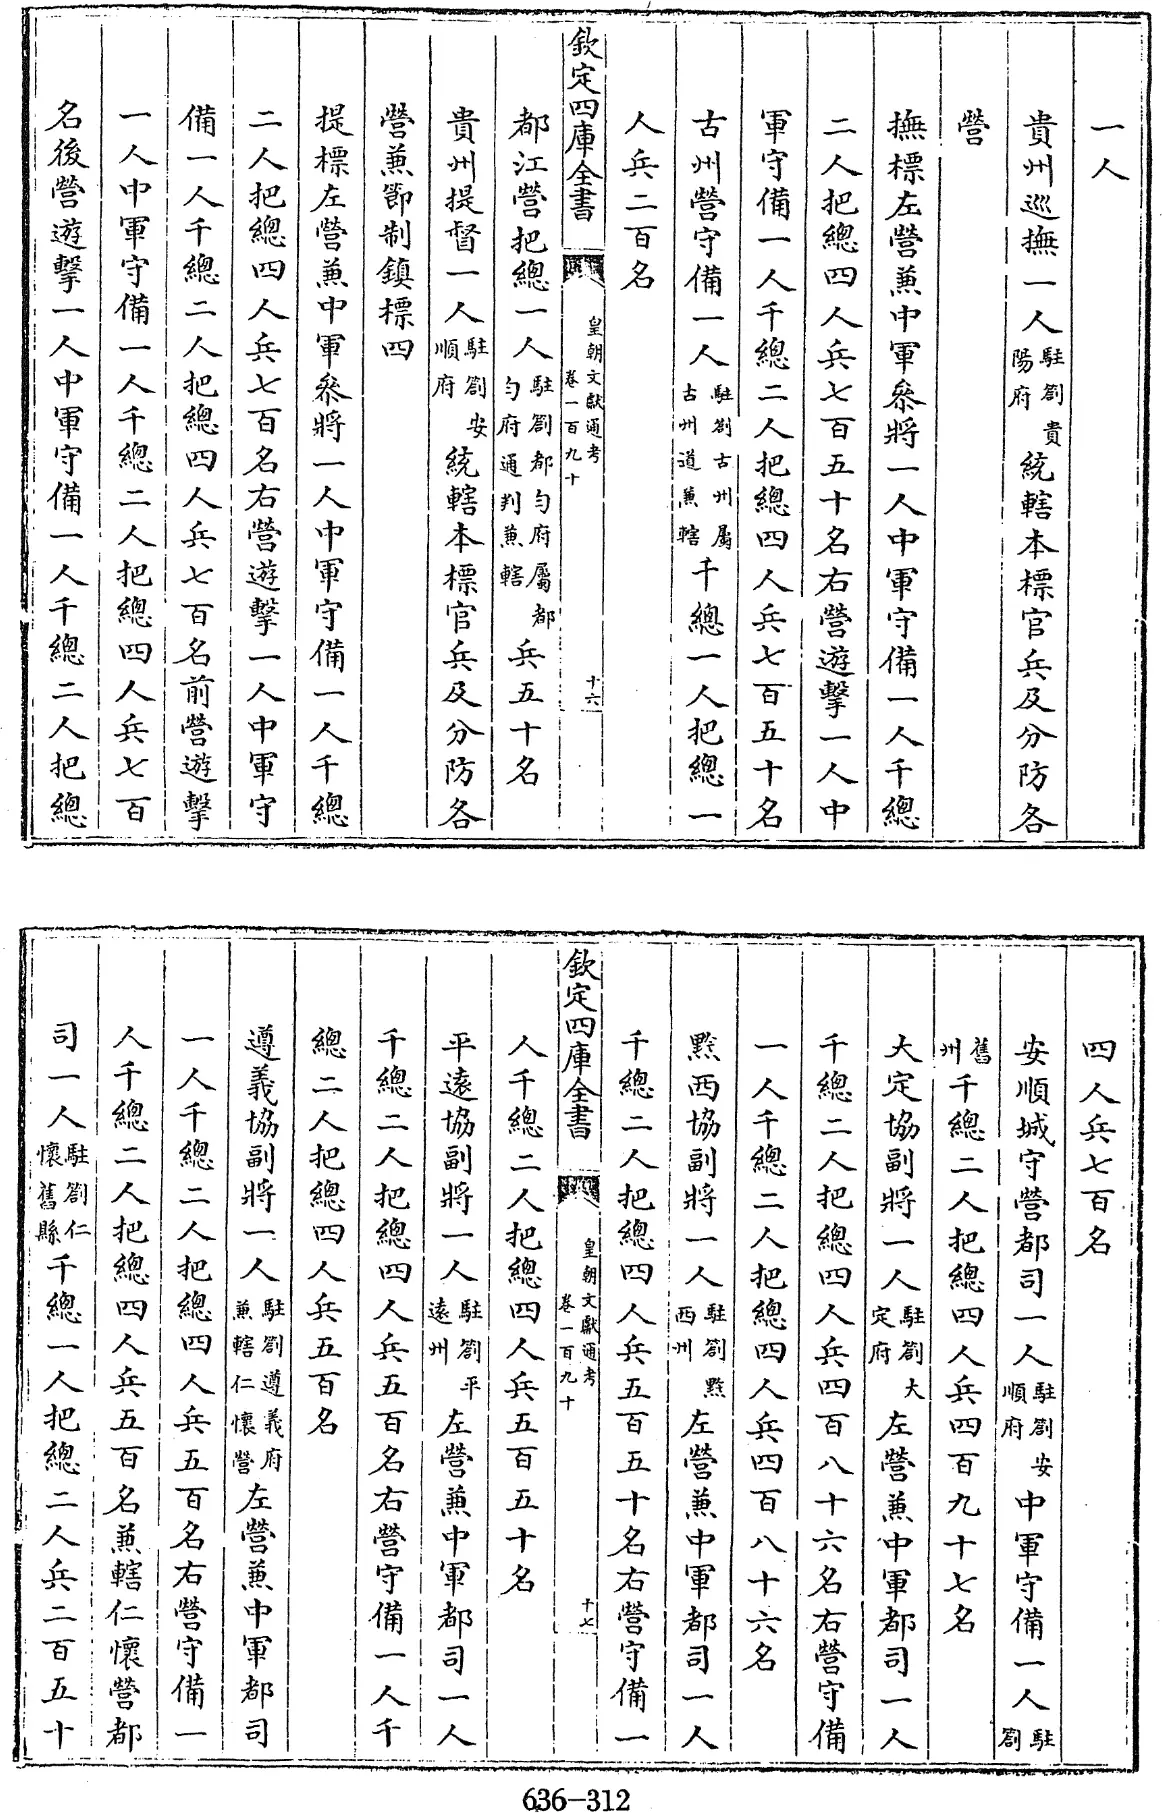 一人
貴州巡撫一人駐劄貴陽府統轄本標官兵及分防各
營
撫標左營兼中軍叅將一人中軍守備一人千總
二人把總四人兵七百五十名右營遊擊一人中
軍守備一人千總二人把總四人兵七百五十名
古州營守備一人駐劄古州屬古州道兼轄千總一人把總一
人兵二百名
欽定四庫全書 皇朝文獻通考 卷一百九十 十六
都江營把總一人駐劄都勻府屬都勻府通判兼轄兵五十名
貴州提督一人駐劄安順府統轄本標官兵及分防各
營兼節制鎮標四
提標左營兼中軍叅將一人中軍守備一人千總
二人把總四人兵七百名右營遊擊一人中軍守
備一人千總二人把總四人兵七百名前營遊擊
一人中軍守備一人千總二人把總四人兵七百
名後營遊擊一人中軍守備一人千總二人把總
四人兵七百名
安順城守營都司一人駐劄安順府中軍守備一人駐劄
舊州千總二人把總四人兵四百九十七名
大定協副將一人駐劄大定府左營兼中軍都司一人
千總二人把總四人兵四百八十六名右營守備
一人千總二人把總四人兵四百八十六名
黔西協副將一人駐劄黔西州左營兼中軍都司一人
千總二人把總四人兵五百五十名右營守備一
欽定四庫全書 皇朝文獻通考 卷一百九十 十七
人千總二人把總四人兵五百五十名
平遠協副將一人駐劄平遠州左營兼中軍都司一人
千總二人把總四人兵五百名右營守備一人千
總二人把總四人兵五百名
遵義協副將一人駐劄遵義府兼轄仁懷營左營兼中軍都司
一人千總二人把總四人兵五百名右營守備一
人千總二人把總四人兵五百名兼轄仁懷營都
司一人駐劄仁懷舊縣千總一人把總二人兵二百五十
636-312